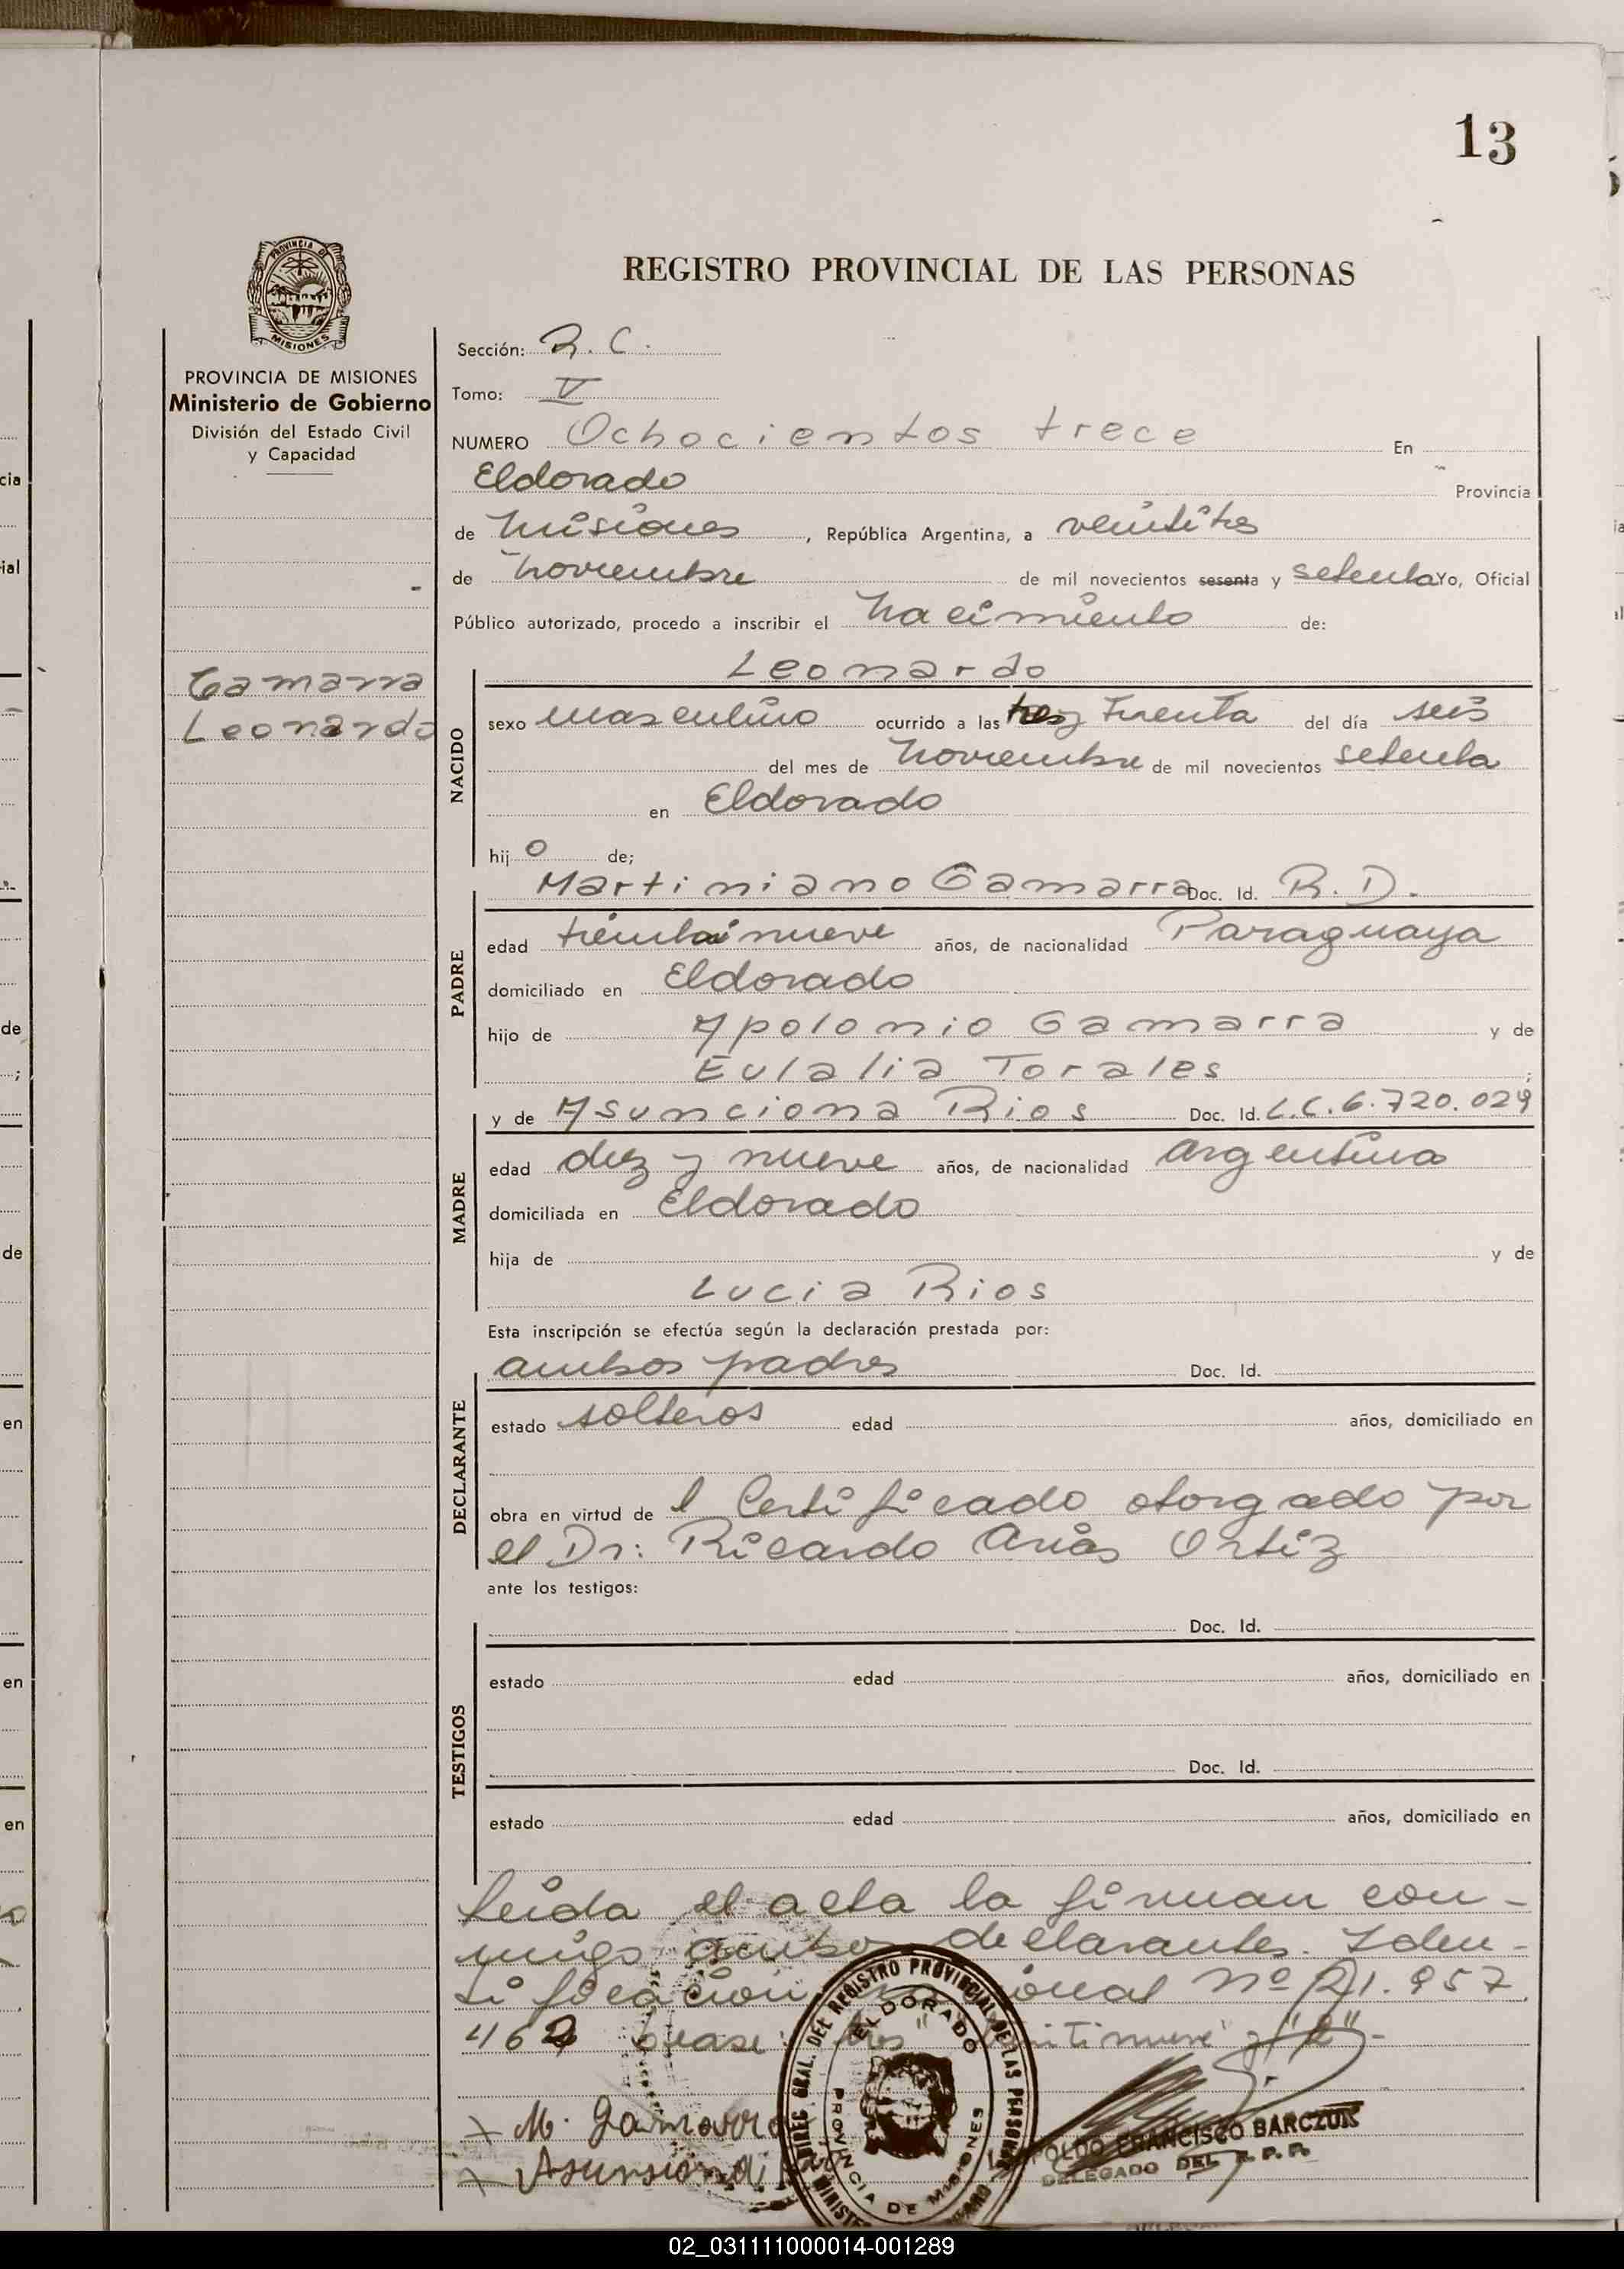 13
PROVINCIA DE
MISIONES
PROVINCIA DE MISIONES
Ministerio de Gobierno
División del Estado Civil
y Capacidad
Gamarra
Leonardo
REGISTRO PROVINCIAL DE LAS PERSONAS
Sección: R. C.
Tomo: V
NUMERO Ochocientos trece En
Eldorado Provincia
de Misiones, República Argentina, a veintitres
de noviembre de mil novecientos sesenta y setenta Yo, Oficial
Público autorizado, procedo a inscribir el nacimiento de:
Leonardo
NACIDO
sexo masculino ocurrido a las tres y treinta del día seis
del mes de noviembre de mil novecientos setenta
en Eldorado
hijo de;
Martiniano Gamarra Doc. Id. R. D.
PADRE
edad treintainueve años, de nacionalidad Paraguaya
domiciliado en Eldorado
hijo de Apolonio Gamarra y de
Eulalia Torales;
y de Asunciona Rios Doc. Id. L.C. 6.720.029
MADRE
edad diez y nueve años, de nacionalidad Argentina
domiciliada en Eldorado
hija de y de
Lucia Rios
Esta inscripción se efectúa según la declaración prestada por:
ambos padres Doc. Id.
DECLARANTE
estado solteros edad años, domiciliado en
obra en virtud de l Certificado otorgado por
el Dr: Ricardo Arias Ortiz
ante los testigos:
Doc. Id.
TESTIGOS
estado edad años, domiciliado en
Doc. Id.
estado edad años, domiciliado en
Leida el acta la firman con-
migo ambos declarantes. Iden-
tificación Nº 21.957.
462
DIREC. GRAL. DEL REGISTRO PROVINCIAL DE LAS PERSONAS
ELDORADO
PROVINCIA DE MISIONES
M. Gamarra
Asunsiona
FRANCISCO BARCZUK
DELEGADO DEL R. P. P.
02_031111000014-001289